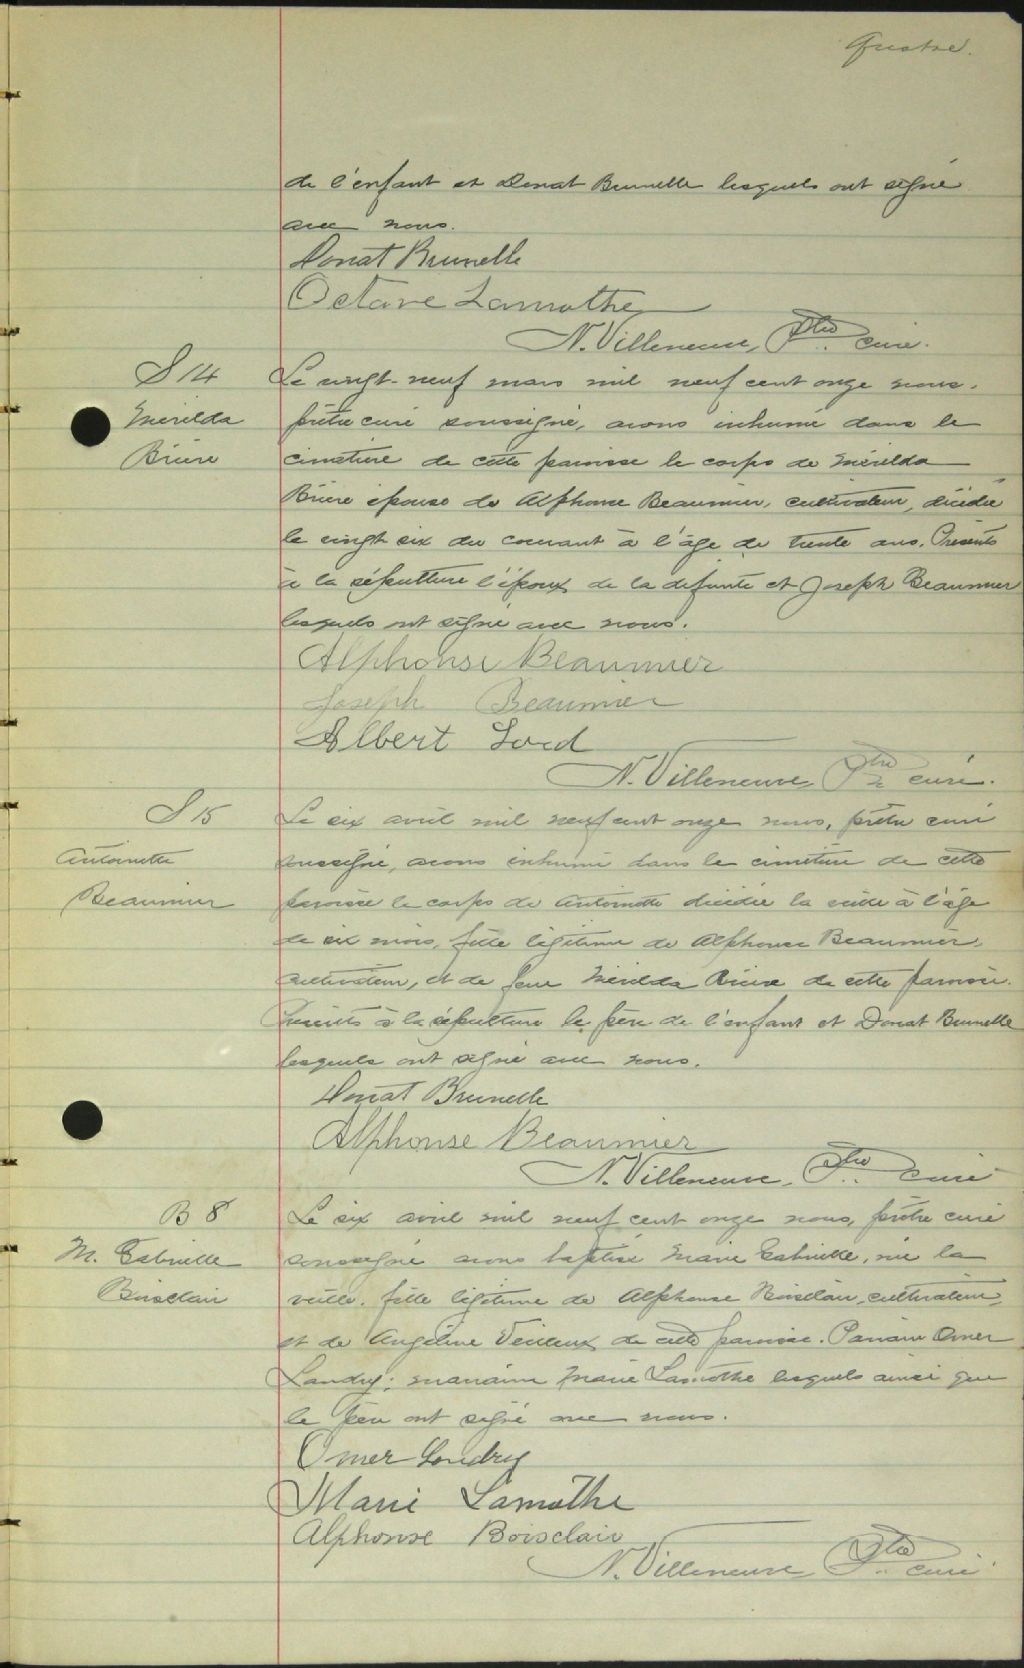 Quatre.
de l'enfant et Donat Brunelle lesquels ont signé
avec nous.
Donat Brunelle
Octave Lamothe
N. Villeneuve, Ptre curé.
S 14
Mérilda
Brière
Le vingt-neuf mars mil neuf cent onze nous,
prêtre curé soussigné, avons inhumé dans le
cimetière de cette paroisse le corps de Mérilda
Brière épouse de Alphonse Beaumier, cultivateur, décédée
le vingt six du courant à l'âge de trente ans. Présents
à la sépulture l'époux de la defunte et Joseph Beaumier
lesquels ont signé avec nous.
Alphonse Beaumier
Joseph Beaumier
Albert Lord
N. Villeneuve, Ptre curé.
S 15
Antoinette
Beaumier
Le six avril mil neuf cent onze nous, prêtre curé
soussigné, avons inhumé dans le cimetière de cette
paroisse le corps de Antoinette décédée la veille à l'âge
de six mois, fille légitime de Alphonse Beaumier,
cultivateur, et de feue Mérilda Brière de cette paroisse.
Présents à la sépulture le père de l'enfant et Donat Brunelle
lesquels ont signé avec nous.
Donat Brunelle
Alphonse Beaumier
N. Villeneuve, Ptre curé
B 8
M. Gabrielle
Boisclair
Le six avril mil neuf cent onze nous, prêtre curé
soussigné avons baptisé Marie Gabrielle, née la
veille, fille légitime de Alphonse Boisclair, cultivateur,
et de Angéline Veilleux de cette paroisse. Parrain Omer
Landry; marraine Marie Lamothe lesquels ainsi que
le père ont signé avec nous.
Omer Landry
Marie Lamothe
Alphonse Boisclair
N. Villeneuve, Ptre curé